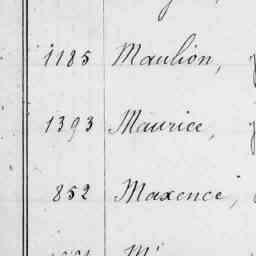 1185 Maulion,
1393 Maurice,
852 Maxence,